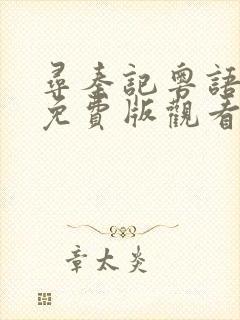 尋秦記粵語
免費版觀看
章太炎